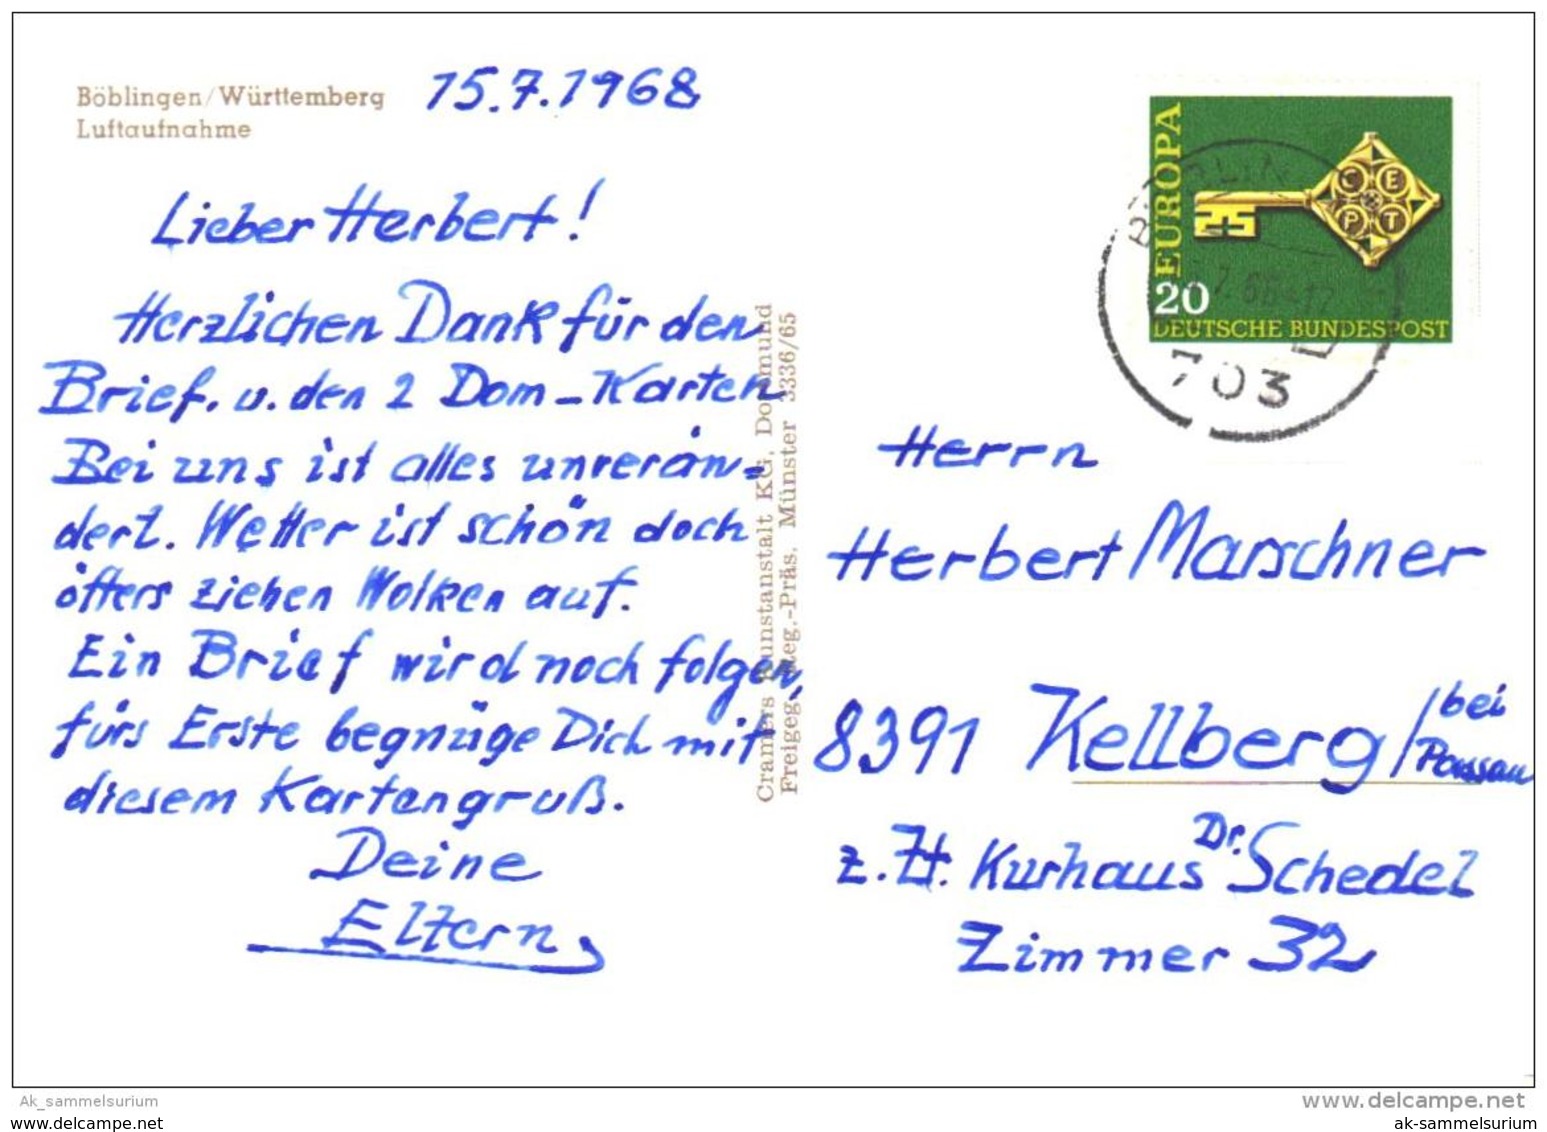 Böblingen/Württemberg
Luftaufnahme
15.7.1968
Lieber Herbert!
Herzlichen Dank für den
Brief. u. den 2 Dom-Karten
Bei uns ist alles unverän-
dert. Wetter ist schön doch
öfters ziehen Wolken auf.
Ein Brief wird noch folgen,
fürs Erste begnüge Dich mit
diesem Kartengruß.
Deine
Eltern
Cramers Kunstanstalt KG, Dortmund
Freigeg. Reg.-Präs. Münster 3336/65
EUROPA
C E
P T
20
DEUTSCHE BUNDESPOST
703
Herrn
Herbert Marschner
8391 Kellberg/bei
Passau
z. Zt. Kurhaus Dr. Schedel
Zimmer 32
Ak_sammelsurium
www.delcampe.net
www.delcampe.net
ak-sammelsurium